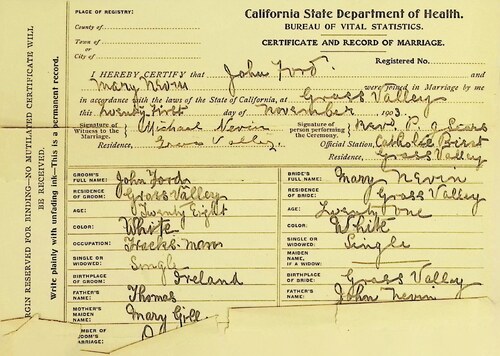 PLACE OF REGISTRY:
County of
Town of
or
City of
California State Department of Health.
BUREAU OF VITAL STATISTICS.
CERTIFICATE AND RECORD OF MARRIAGE.
Registered No.
I HEREBY CERTIFY that John Ford. and
Mary Nevin were joined in Marriage by me
in accordance with the laws of the State of California, at Grass Valley
this twenty first day of November 1903.
Signature of Witness to the Marriage Michael Nevin
Residence, Grass Valley
Signature of person performing the Ceremony, Rev'd P.
Official Station, Catholic Priest
Residence, Grass Valley
GROOM'S FULL NAME: John Ford
RESIDENCE OF GROOM: Grass Valley
AGE: Twenty Eight
COLOR: White
OCCUPATION:
SINGLE OR WIDOWED: Single
BIRTHPLACE OF GROOM: Ireland
FATHER'S NAME: Thomas
MOTHER'S MAIDEN NAME: Mary Gill
BRIDE'S FULL NAME: Mary Nevin
RESIDENCE OF BRIDE: Grass Valley
AGE: Twenty One
COLOR: White
SINGLE OR WIDOWED: Single
MAIDEN NAME, IF A WIDOW:
BIRTHPLACE OF BRIDE: Grass Valley
FATHER'S NAME: John Nevin
RGIN RESERVED FOR BINDING—NO MUTILATED CERTIFICATE WILL
BE RECEIVED.
Write plainly with unfading ink—This is a permanent record.